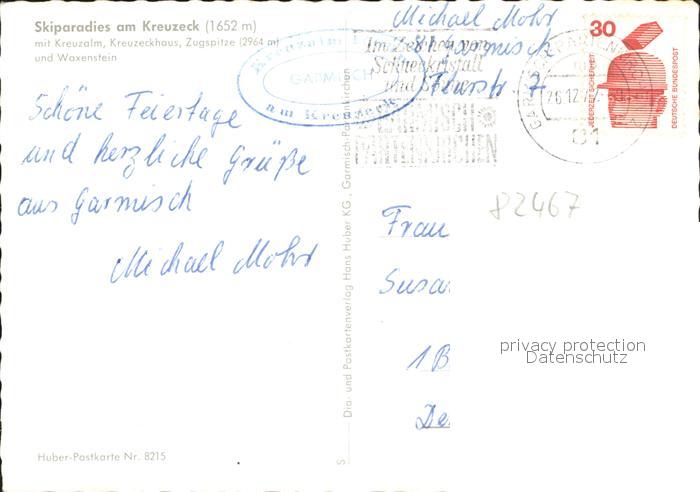 Skiparadies am Kreuzeck (1652 m)
mit Kreuzalm, Kreuzeckhaus, Zugspitze (2964 m)
und Waxenstein
Kreuzalm
GARMISCH
am Kreuzeck
Michael Mohr
81 Garmisch
7
Im Zeichen von
Schneekristall
und
GARMISCH
PARTENKIRCHEN
30
JEDERZEIT SICHERHEIT
DEUTSCHE BUNDESPOST
81
Schöne Feiertage
und herzliche Grüße
aus Garmisch
Michael Mohr
82467
Frau
Susa
1 B
De
privacy protection
Datenschutz
Dia- und Postkartenverlag Hans Huber KG., Garmisch-Partenkirchen
S
Huber-Postkarte Nr. 8215